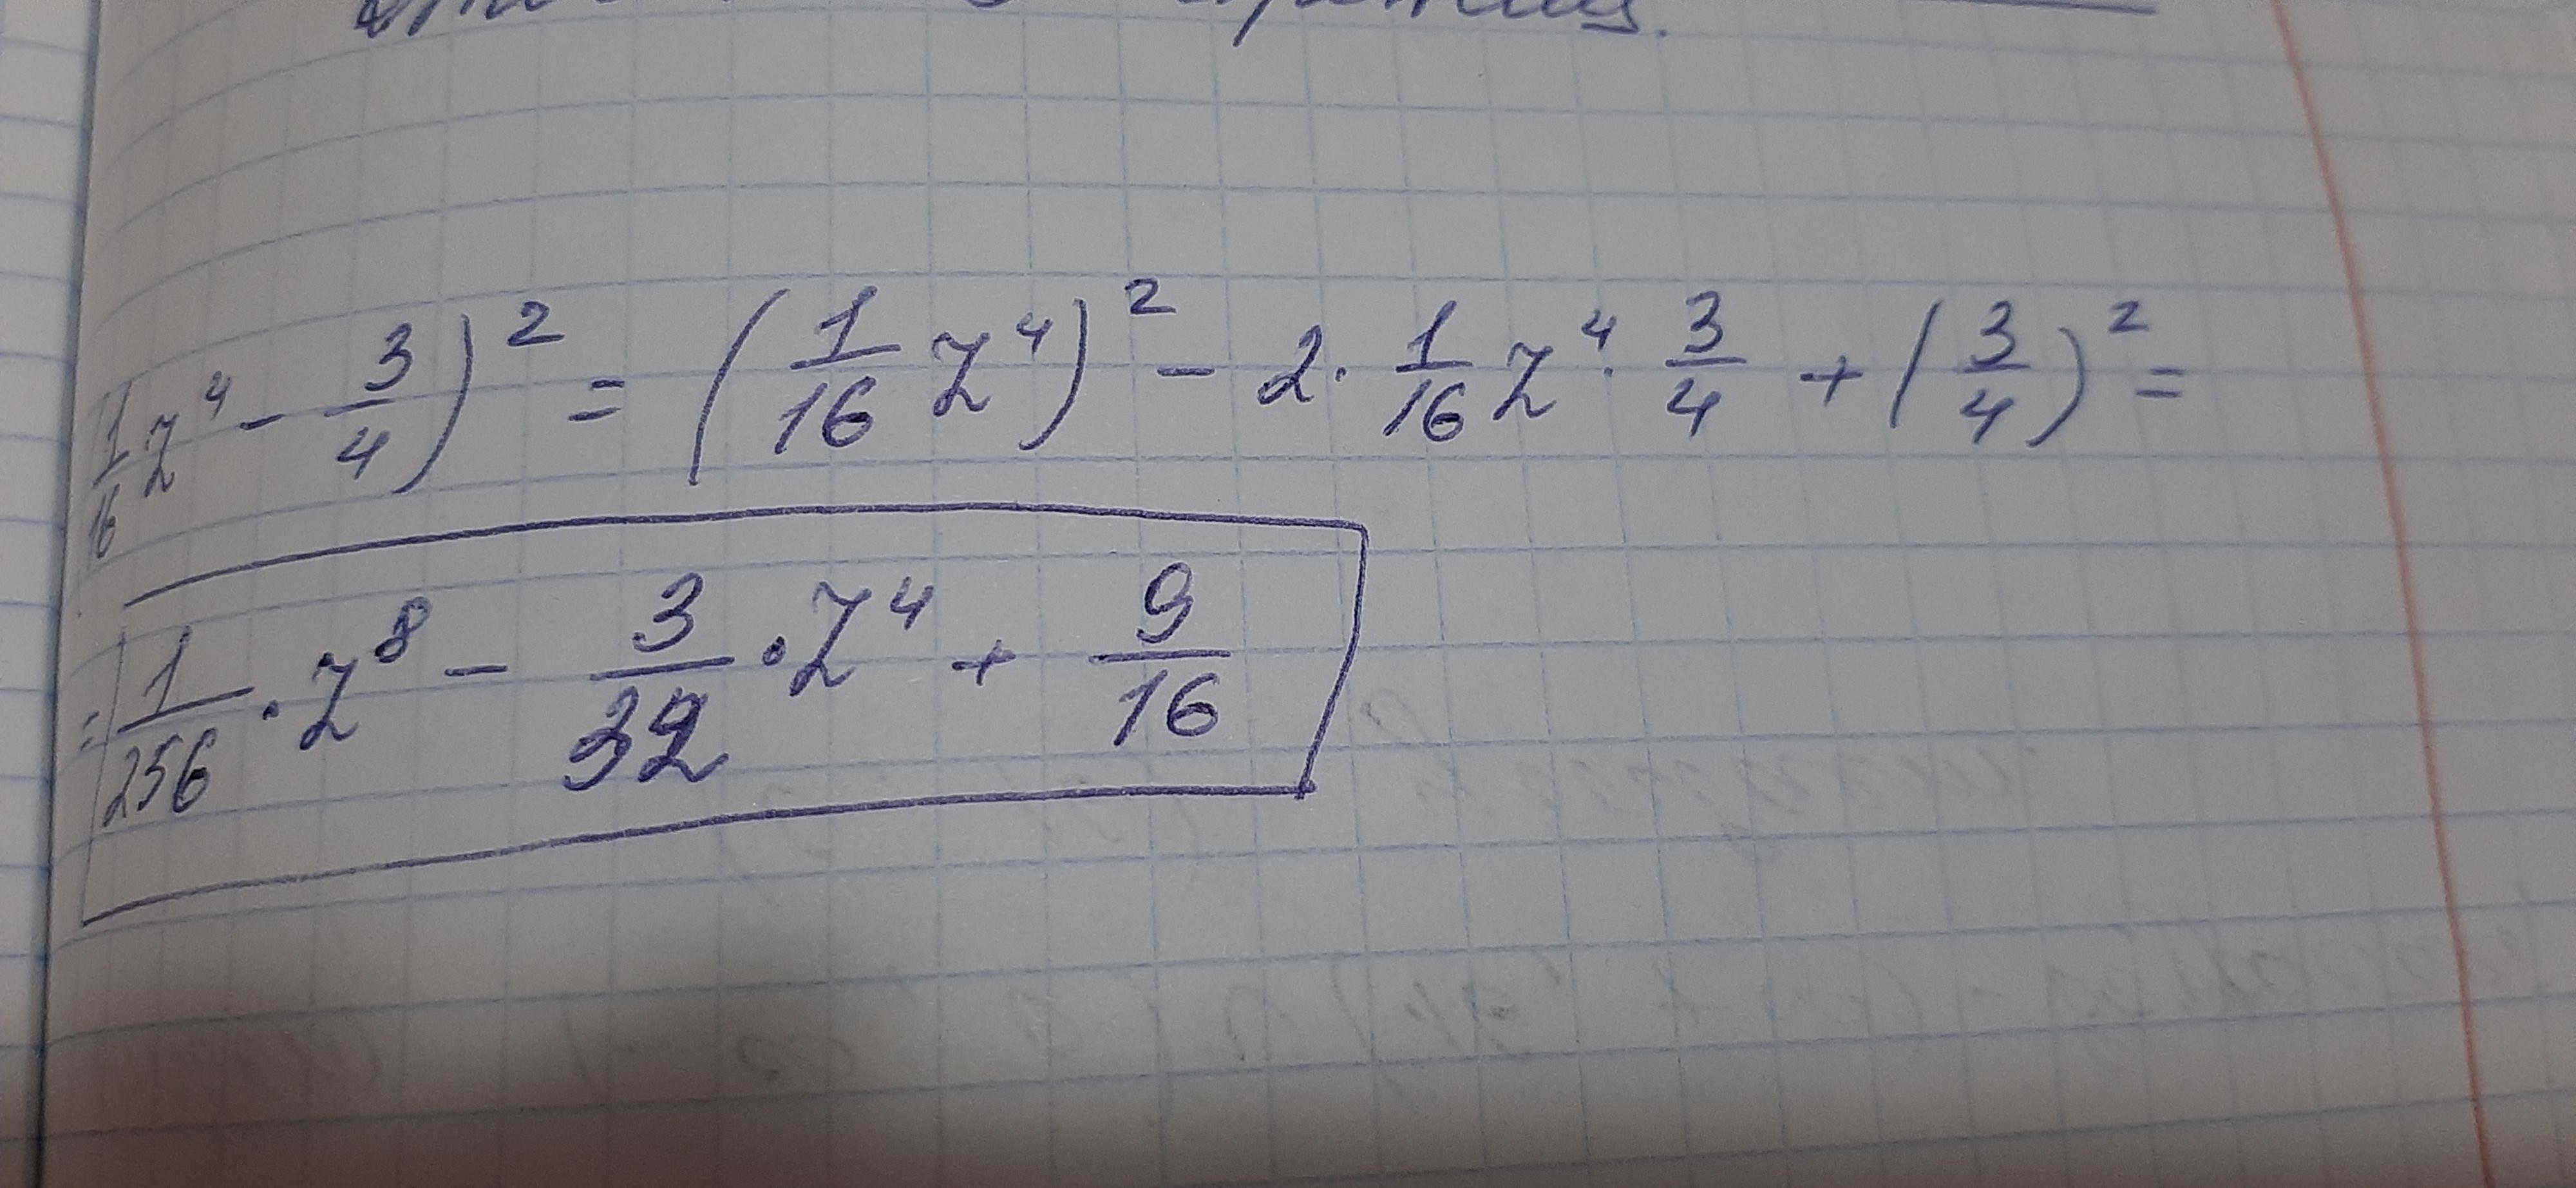 1/16 z⁴ - 3/4)² = (1/16 z⁴)² - 2 · 1/16 z⁴ · 3/4 + (3/4)² =
= 1/256 · z⁸ - 3/32 · z⁴ + 9/16